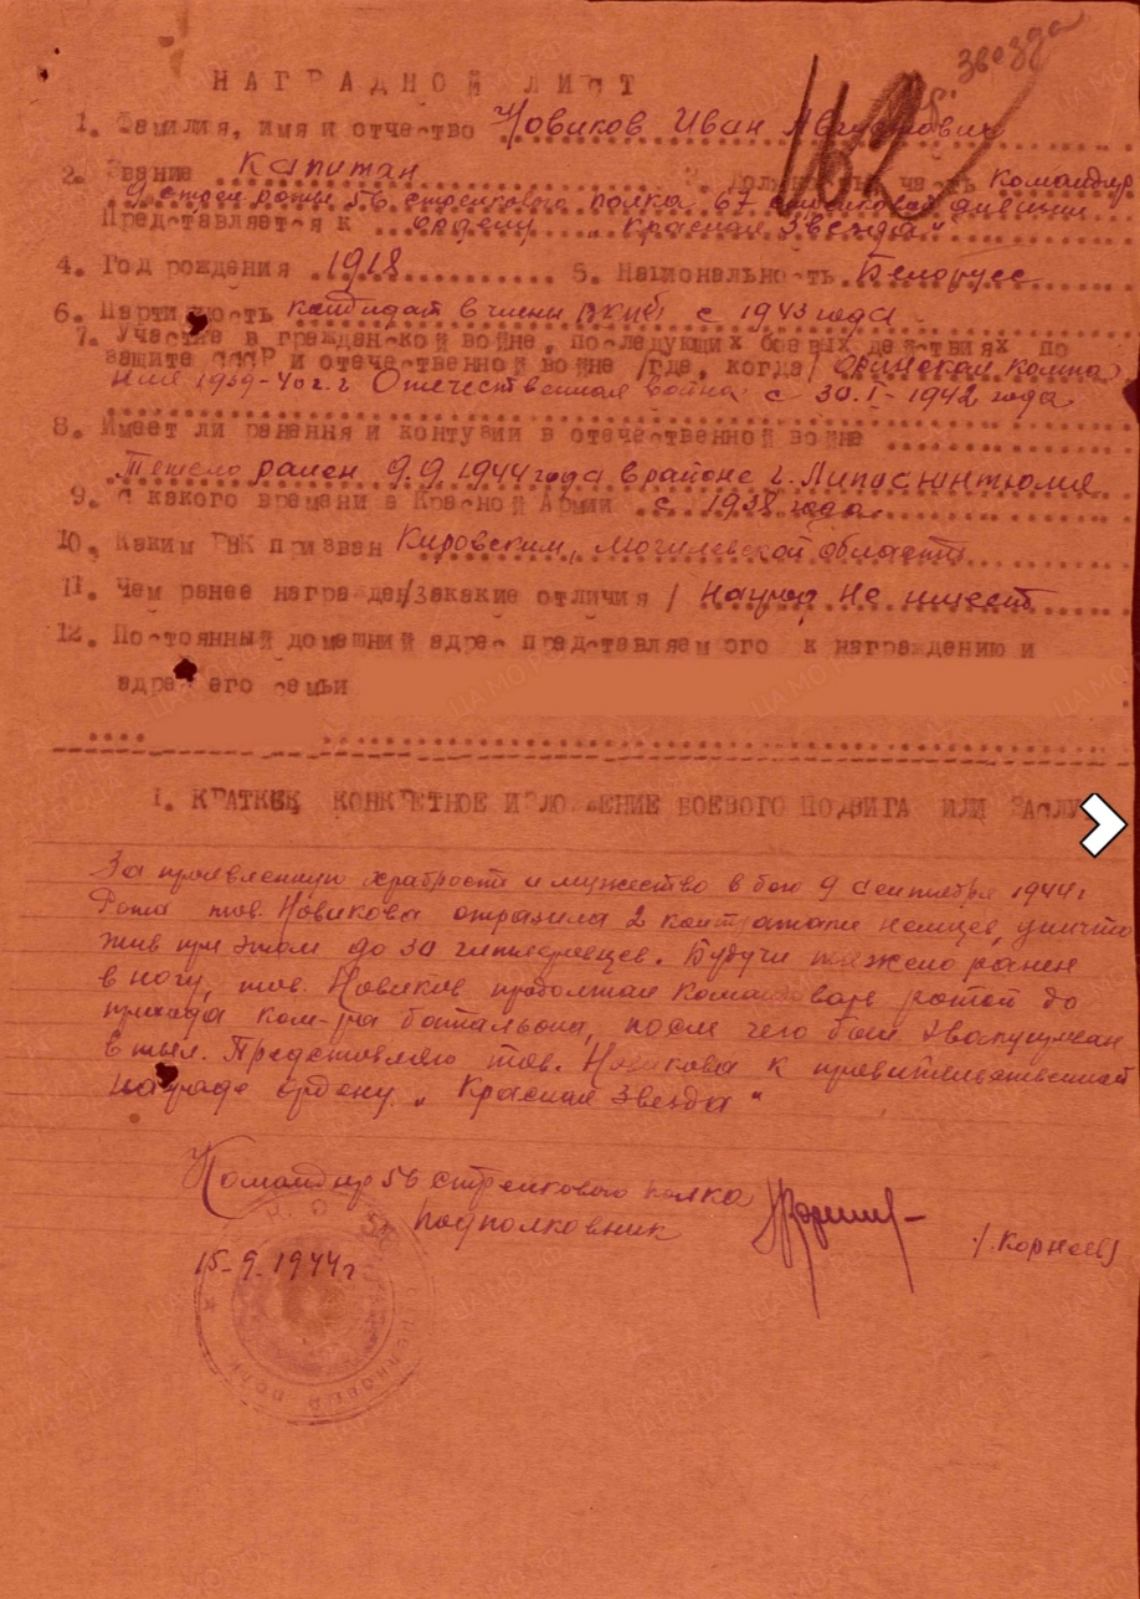 Кр. звезда
162
НАГРАДНОЙ ЛИСТ
1. Фамилия, имя и отчество Новиков Иван Августович
2. Звание Капитан 3. Должность, часть Командир
9 стрел роты 56 стрелкового полка 67 стрелковой дивизии
Представляется к ордену „Красная Звезда"
4. Год рождения 1918 5. Национальность Белорусс
6. Партийность кандидат в члены ВКП(б) с 1943 года
7. Участие в гражданской войне, последующих боевых действиях по
защите СССР и отечественной войне /где, когда/ Финская компа
ния 1939-40г.г Отечественная война с 30.I-1942 года
8. Имеет ли ранения и контузии в отечественной войне
Тяжело ранен 9.9.1944 года в районе г.
9. С какого времени в Красной Армии с 1938 года
10. Каким РВК призван Кировским, Могилевской области
11. Чем ранее награжден/закакие отличия/ Наград не имеет
12. Постоянный домашний адрес представляемого к награждению и
адрес его семьи
I. КРАТКОЕ КОНКРЕТНОЕ ИЗЛОЖЕНИЕ БОЕВОГО ПОДВИГА ИЛИ ЗАСЛУ
За проявленную храбрость и мужество в бою 9 сентября 1944г
Рота тов. Новикова отразила 2 контратаки немцев, уничто
жив при этом до 30 гитлеровцев. Будучи тяжело ранен
в ногу, тов. Новиков продолжал командовать ротой до
прихода ком-ра батальона, после чего был эвакуирован
в тыл. Представляю тов. Новикова к правительственной
награде ордену „Красная Звезда"
Командир 56 стрелкового полка
подполковник /Корнеев/
15.9.1944г